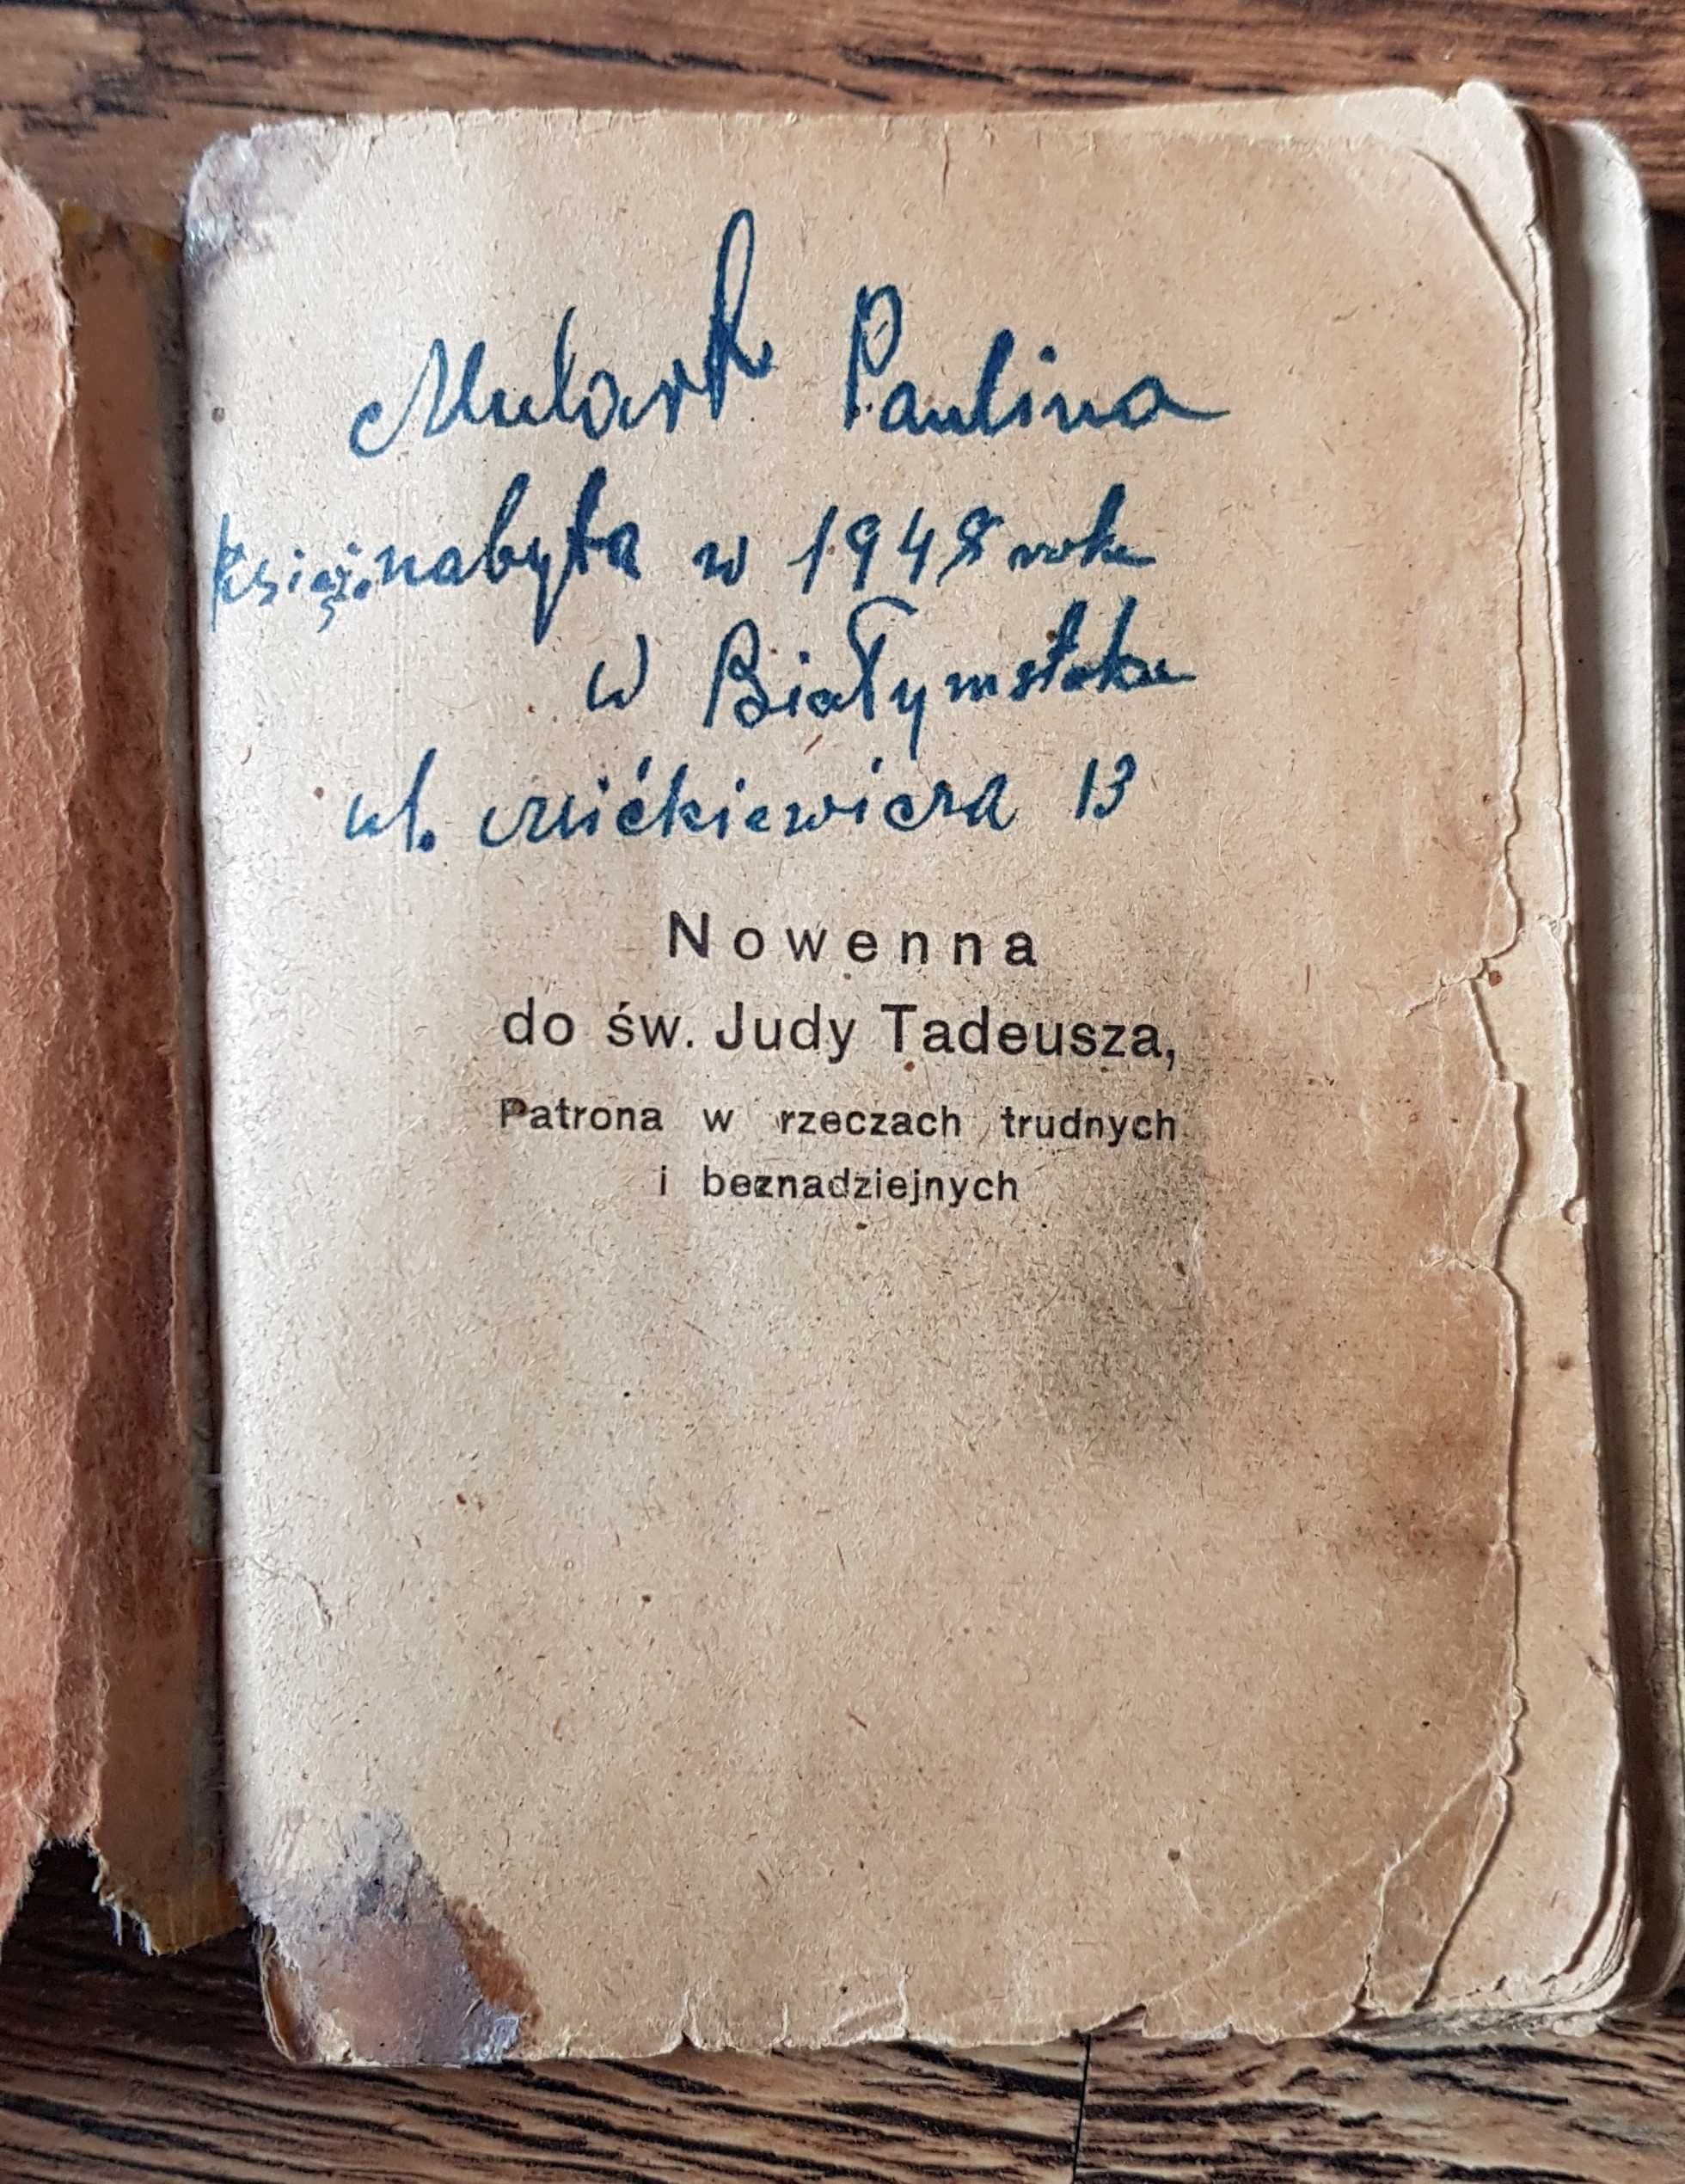 Mulark Paulina
nabyta w 1948 roku
w Białymstoku
ul. Mićkiewicza 13
Nowenna
do św. Judy Tadeusza,
Patrona w rzeczach trudnych
i beznadziejnych